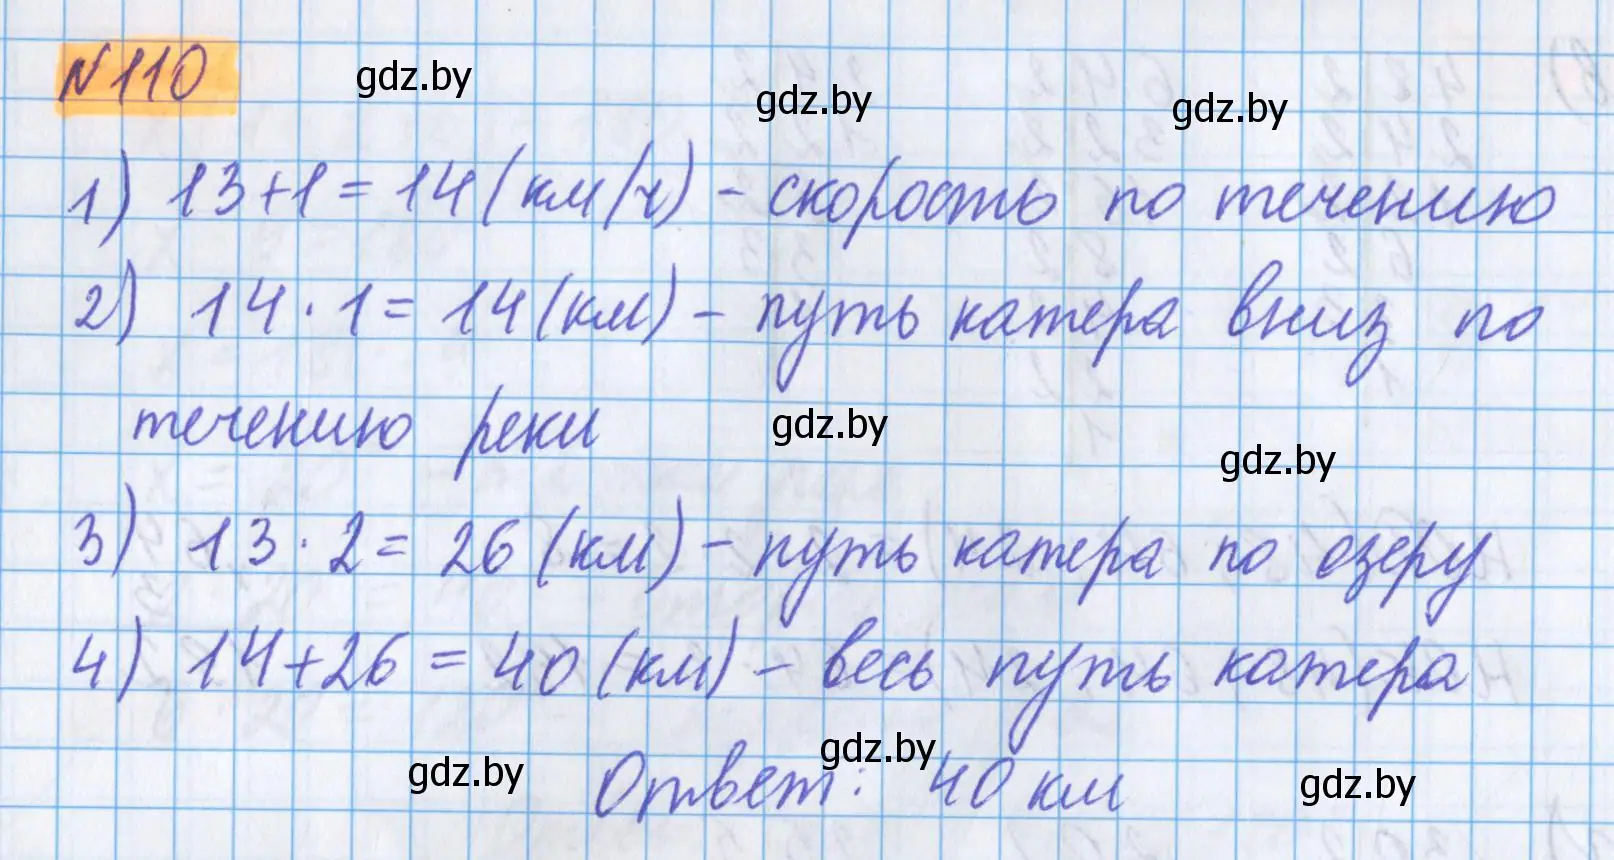 №110
gdz.by
gdz.by
gdz.by
1) 13+1=14(км/ч) - скорость по течению
2) 14·1=14(км) - путь катера вниз по
течению реки
gdz.by
gdz.by
3) 13·2=26(км) - путь катера по озеру
4) 14+26=40(км) - весь путь катера
gdz.by
gdz.by
gdz.by
Ответ: 40 км